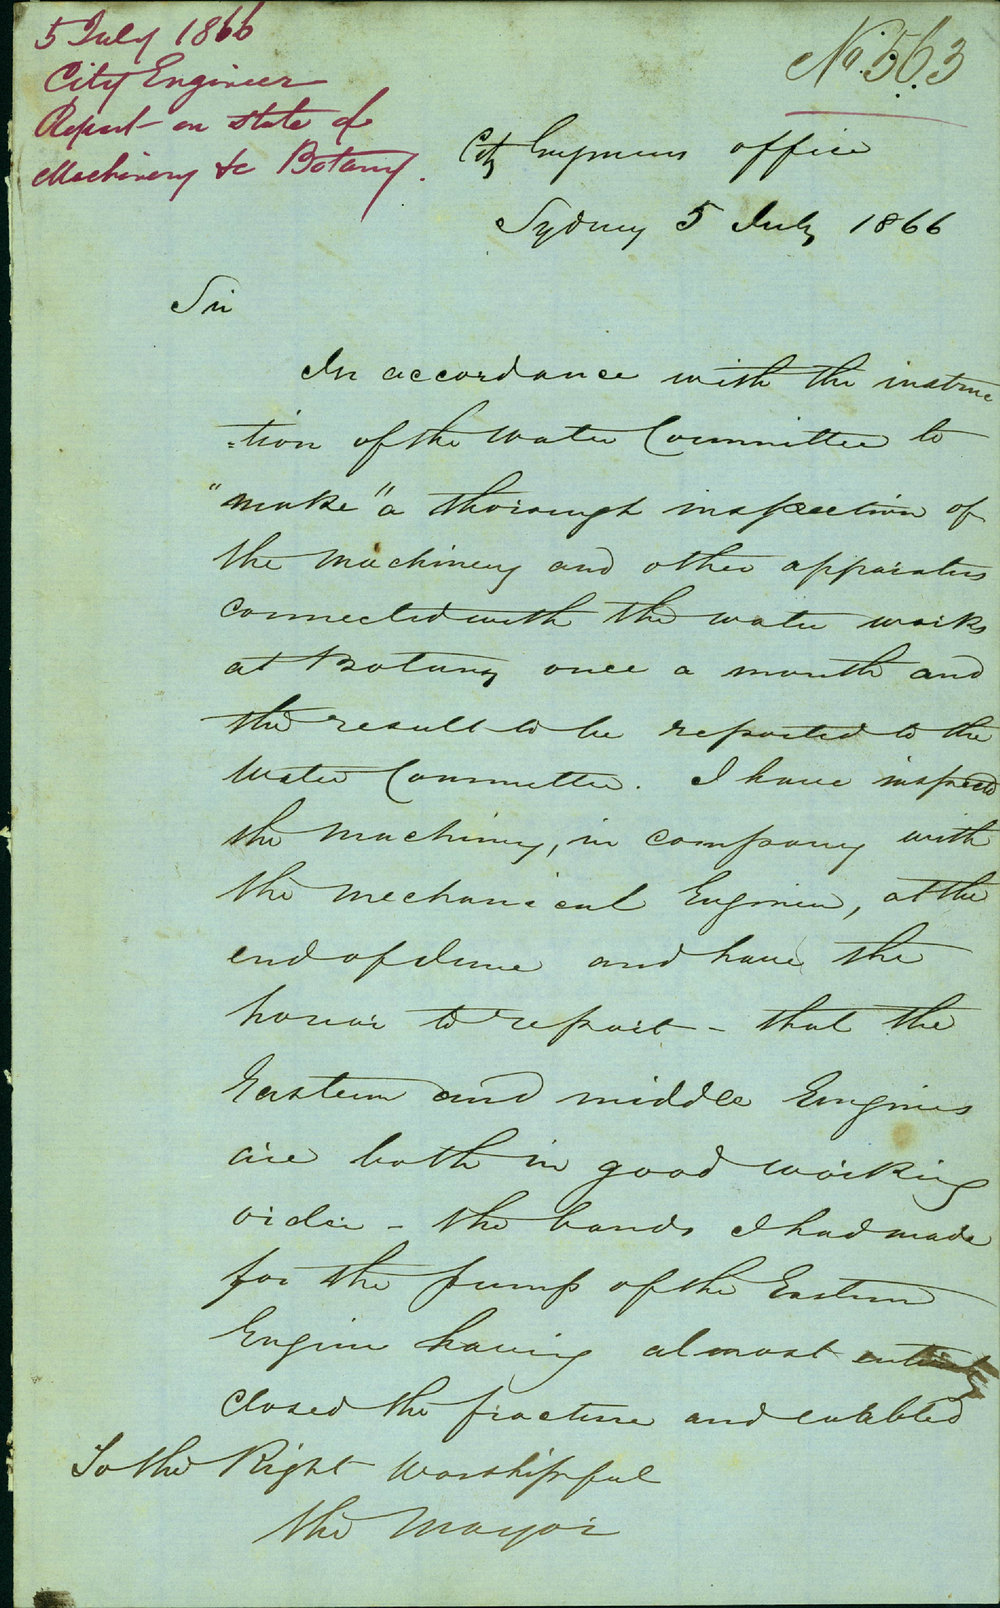 5 July 1866
City Engineer
Report on state of
Machinery &c Botany.
No. 563
City Engineers office
Sydney 5 July 1866
Sir
In accordance with the instruc
=tion of the Water Committee to
"make" a thorough inspection of
the machinery and other apparatus
connected with the water works
at Botany once a month and
the result to be reported to the
Water Committee. I have inspected
the machinery, in company with
the mechanical Engineer, at the
end of June and have the
honor to report - that the
Eastern and middle Engines
are both in good working
order - the bands I had made
for the pump of the Eastern
Engine having almost entirely
closed the fracture and enabled
To the Right Worshipful
the Mayor